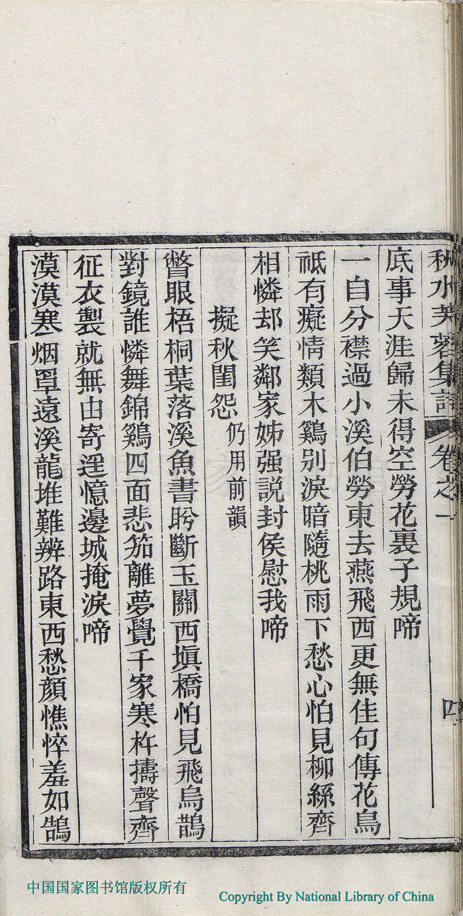 秋水芙蓉集詩 卷之一 四
底事天涯歸未得空勞花裏子規啼
一自分襟過小溪伯勞東去燕飛西更無佳句傳花鳥
祗有癡情類木鷄别淚暗隨桃雨下愁心怕見柳絲齊
相憐却笑鄰家姊强説封侯慰我啼
擬秋閨怨仍用前韻
瞥眼梧桐葉落溪魚書盻斷玉關西塡橋怕見飛烏鵲
對鏡誰憐舞錦鷄四面悲笳離夢覺千家寒杵擣聲齊
征衣製就無由寄遥憶邊城掩淚啼
漠漠寒烟罩遠溪龍堆難辨路東西愁顔憔悴羞如鵠
中国国家图书馆版权所有
Copyright By National Library of China